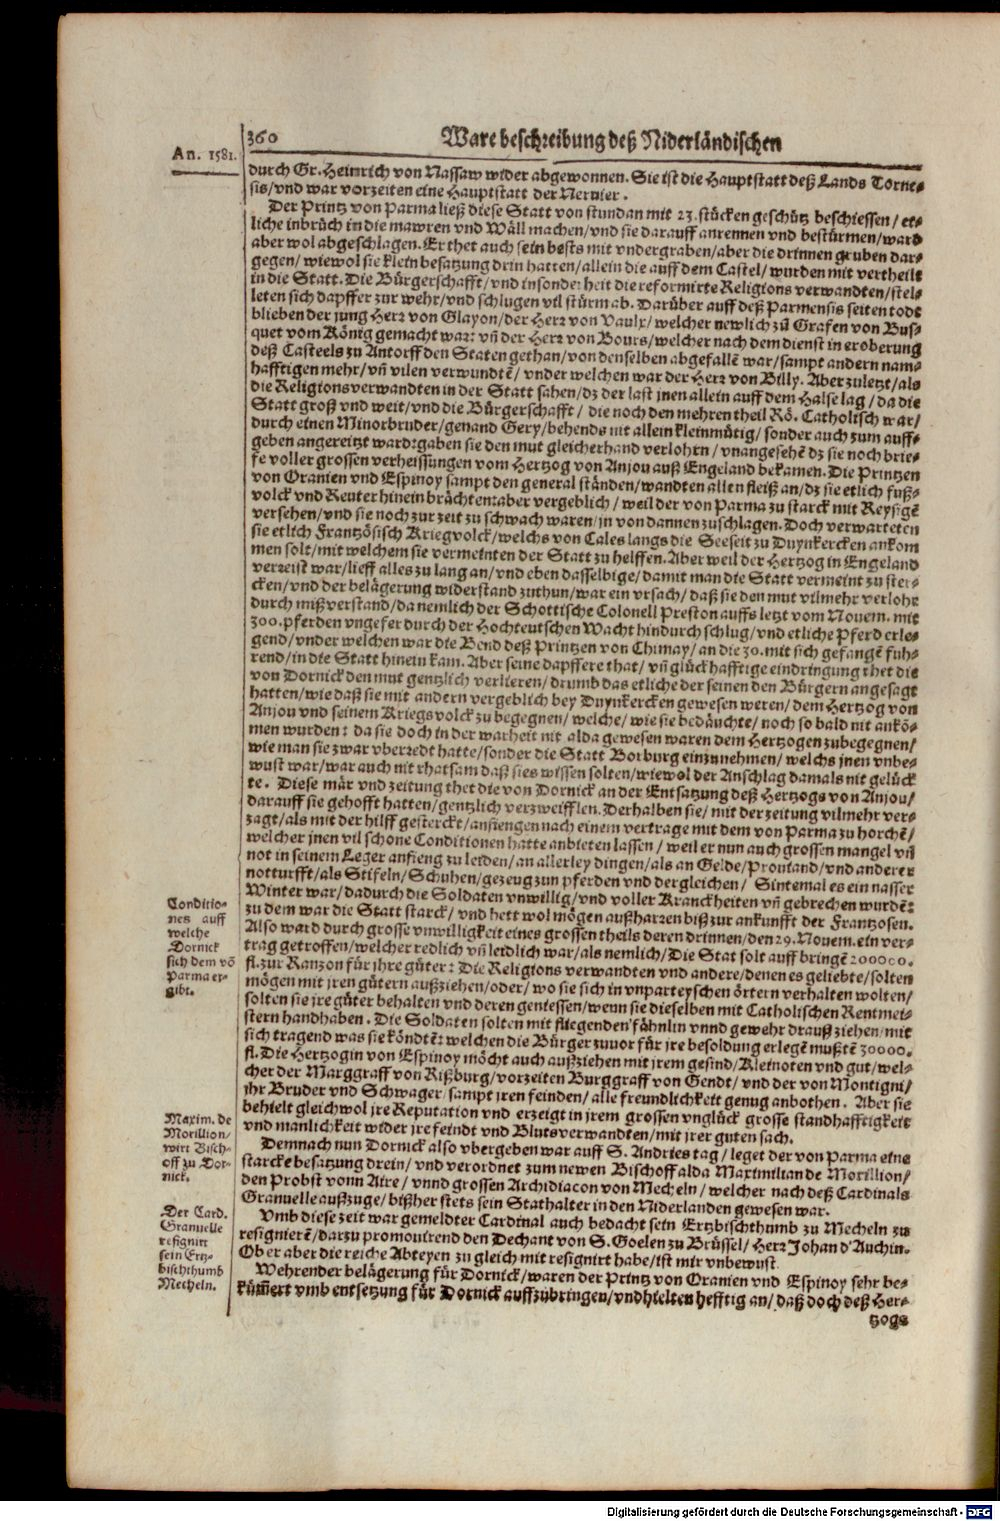 360 Ware beschreibung deß Niderländischen
An. 1581.
durch Gr. Heinrich von Nassaw wider abgewonnen. Sie ist die Hauptstatt deß Lands Torne-
sis/vnd war vorzeiten eine Hauptstatt der Nervier.
Der Printz von Parma ließ diese Statt von stundan mit 23. stücken geschütz beschiessen/ et-
liche inbrüch in die mawren vnd Wäll machen/vnd sie darauff anrennen vnd bestürmen/ward
aber wol abgeschlagen. Er thet auch sein bests mit vndergraben/aber die drinnen gruben dar-
gegen/ wiewol sie klein besatzung drin hatten/allein die auff dem Castel/ wurden mit vertheilt
in die Statt. Die Bürgerschafft/vnd insonderheit die reformirte Religions verwandten/stel-
leten sich dapffer zur wehr/vnd schlugen vil stürm ab. Darüber auff deß Parmensis seiten todt
blieben der jung Herr von Glayon/der Herr von Vaulx/welcher newlich zũ Grafen von Bus-
quet vom König gemacht war: vñ der Herr von Bours/welcher nach dem dienst in eroberung
deß Casteels zu Antorff den Staten gethan/von denselben abgefallẽ war/sampt andern nam-
hafftigen mehr/vñ vilen verwundtẽ/ vnder welchen war der Herr von Billy. Aber zuletzt/als
die Religionsverwandten in der Statt sahen/dz der last jnen allein auff dem Halse lag/da die
Statt groß vnd weit/vnd die Bürgerschafft/ die noch den mehren theil Rö. Catholisch war/
durch einen Minorbruder/genand Gery/behends nit allein kleinmütig/ sonder auch zum auff-
geben angereitzt ward: gaben sie den mut gleicherhand verlohrn/vnangesehẽ dz sie noch brie-
fe voller grossen verheissungen vom Hertzog von Anjou auß Engeland bekamen. Die Printzen
von Oranien vnd Espinoy sampt den general ständen/wandten allen fleiß an/dz sie etlich fuß-
volck vnd Reuter hinein brächten: aber vergeblich/ weil der von Parma zu starck mit Reysigẽ
versehen/vnd sie noch zur zeit zu schwach waren/jn von dannen zuschlagen. Doch verwarteten
sie etlich Frantzösisch Kriegvolck/welchs von Cales langs die Seeseit zu Duynkercken ankom
men solt/mit welchem sie vermeinten der Statt zu helffen. Aber weil der Hertzog in Engeland
verreist war/lieff alles zu lang an/vnd eben dasselbige/damit man die Statt vermeint zu ster-
cken/vnd der belägerung widerstand zuthun/war ein vrsach/ daß sie den mut vilmehr verlohr
durch mißverstand/da nemlich der Schottische Colonell Preston auffs letzt vom Nouem. mit
300. pferden vngefer durch der Hochteutschen Wacht hindurch schlug/vnd etliche Pferd erle-
gend/vnder welchen war die Bend deß Printzen von Chimay/an die 30. mit sich gefangẽ fuh-
rend/in die Statt hinein kam. Aber seine dapffere that/ vñ glückhafftige eindringung thet die
von Dornick den mut gentzlich verlieren/drumb das etliche der seinen den Bürgern angesagt
hatten/wie daß sie mit andern vergeblich bey Duynkercken gewesen weren/dem Hertzog von
Anjou vnd seinem Kriegsvolck zu begegnen/ welche/ wie sie bedäuchte/ noch so bald nit ankõ-
men wurden: da sie doch in der warheit nit alda gewesen waren dem Hertzogen zubegegnen/
wie man sie zwar vberredt hatte/sonder die Statt Borburg einzunehmen/ welchs jnen vnbe-
wust war/war auch nit rhatsam daß sies wissen solten/wiewol der Anschlag damals nit gelück
te. Diese mär vnd zeitung thet die von Dornick an der Entsatzung deß Hertzogs von Anjou/
darauff sie gehofft hatten/gentzlich verzweifflen. Derhalben sie/ mit der zeitung vilmehr ver-
zagt/als mit der hilff gesterckt/anfiengen nach einem vertrage mit dem von Parma zu horchẽ/
welcher jnen vil schöne Conditionen hatte anbieten lassen/ weil er nun auch grossen mangel vñ
not in seinem Leger anfieng zu leiden/an allerley dingen/als an Gelde/Prouiand/vnd anderer
notturfft/als Stifeln/Schuhen/gezeug zun pferden vnd dergleichen/ Sintemal es ein nasser
Winter war/dadurch die Soldaten vnwillig/vnd voller Kranckheiten vñ gebrechen wurdẽ:
zu dem war die Statt starck/ vnd hett wol mögen außharren biß zur ankunfft der Frantzosen.
Also ward durch grosse vnwilligkeit eines grossen theils deren drinnen/den 29. Nouem. ein ver-
trag getroffen/welcher redlich vñ leidlich war/als nemlich/Die Stat solt auff bringẽ 200000.
fl. zur Ranzon für jhre güter: Die Religions verwandten vnd andere/denen es geliebte/solten
mögen mit jren gütern außziehen/oder/ wo sie sich in vnparteyschen örtern verhalten wolten/
solten sie jre güter behalten vnd deren geniessen/wenn sie dieselben mit Catholischen Rentmei-
stern handhaben. Die Soldaten solten mit fliegenden fähnlin vnnd gewehr drauß ziehen/mit
sich tragend was sie köndtẽ: welchen die Bürger zuvor für jre besoldung erlegẽ mußtẽ 30000.
fl. Die Hertzogin von Espinoy möcht auch außziehen mit jrem gesind/Kleinoten vnd gut/wel-
cher der Marggraff von Rißburg/vorzeiten Burggraff von Gendt/ vnd der von Montigni/
jhr Bruder vnd Schwager/sampt jren feinden/alle freundlichkeit genug anbothen. Aber sie
behielt gleichwol jre Reputation vnd erzeigt in jrem grossen vnglück grosse standhafftigkeit
vnd manlichkeit wider jre feindt vnd Blutsverwandten/mit jrer guten sach.
Conditio-
nes auff
welche
Dornick
sich dem võ
Parma er-
gibt.
Demnach nun Dornick also vbergeben war auff S. Andries tag/ leget der von Parma eine
starcke besatzung drein/ vnd verordnet zum newen Bischoff alda Maximilian de Morillion/
den Probst vonn Aire/ vnnd grossen Archidiacon von Mecheln/ welcher nach deß Cardinals
Granuelle außzuge/ bißher stets sein Stathalter in den Niderlanden gewesen war.
Maxim. de
Morillion/
wirt Bisch-
off zu Dor-
nick.
Vmb diese zeit war gemeldter Cardinal auch bedacht sein Ertzbischthumb zu Mecheln zu
resignierẽ/darzu promouirend den Dechant von S. Goelen zu Brüssel/ Herr Johan d'Auchin.
Ob er aber die reiche Abteyen zu gleich mit resignirt habe/ist mir vnbewust.
Der Card.
Granuelle
resignirt
sein Ertz-
bischthumb
Mecheln.
Wehrender belägerung für Dornick/waren der Printz von Oranien vnd Espinoy sehr be-
küm̃ert vmb entsetzung für Dornick auffzubringen/vnd hielten hefftig an/ daß doch deß Her-
tzogs
Digitalisierung gefördert durch die Deutsche Forschungsgemeinschaft - DFG